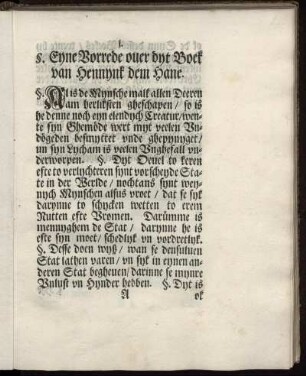 1.
§. Eyne Vorrede ouer dyt Boek
van Hennynk dem Hane.
§. Al is de Mynsche mank allen Deeren
am herliksten gheschapen / so is
he denne noch eyn elendych Creatur / wen-
te syn Ghemöde wert myt veelen Vn-
dögeden besmyttet vnde ghepynyget /
vn syn Lycham is veelen Vnghefall vn-
derworpen. §. Dyt Oeuel to keren
efte to verlychteren synt vorscheyde Sta-
te in der Werlde / nochtans synt wey-
nych Mynschen alsus vroet / dat se syk
darynne to schycken wetten to erem
Nutten efte Vromen. Darümme is
mennyghem de Stat / darynne he is
efte syn moet / schedlyk vn vordretlyk.
§. Desse doen wyß / wan se densuluen
Stat lathen varen / vn syk in eynen an-
deren Stat begheuen / darinne se mynre
Vnlust vn Hynder hebben. §. Dyt is
A ok